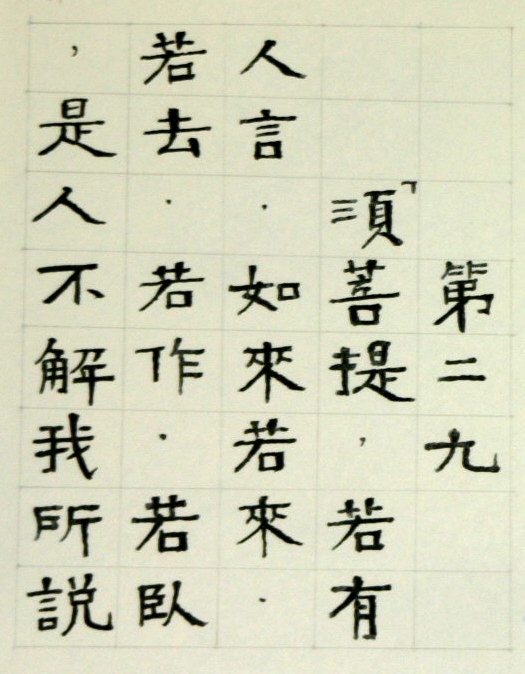 第二九
「須菩提，若有
人言．如來若來．
若去．若作．若臥
，是人不解我所説